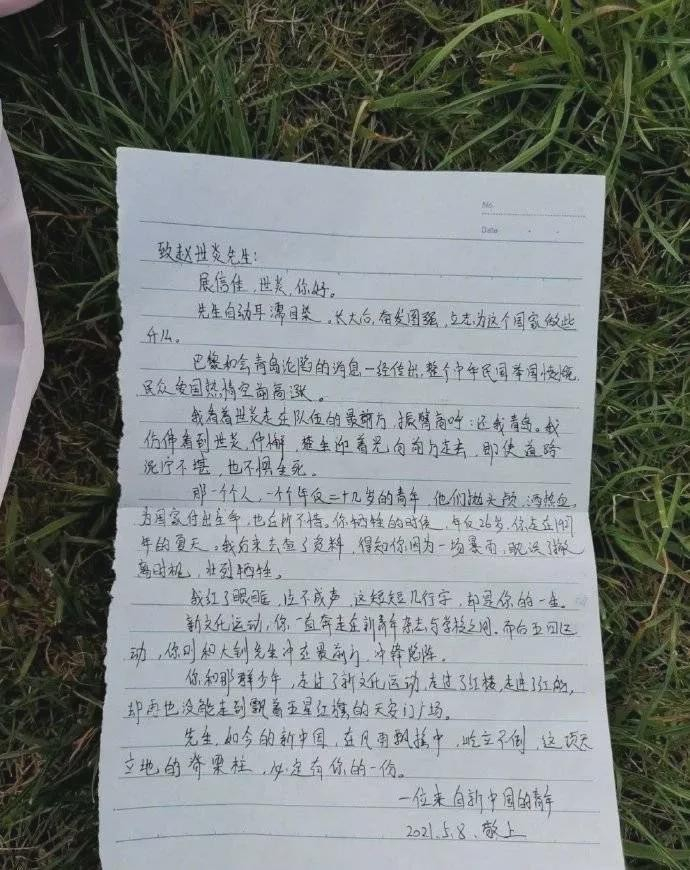 No.
Date
致赵世炎先生:
展信佳,世炎,你好。
先生自幼耳濡目染。长大后,奋发图强,立志为这个国家做些
什么。
巴黎和会青岛沦陷的消息一经传出,整个中华民国举国愤慨,
民众爱国热情空前高涨。
我看着世炎走在队伍的最前方,振臂高呼:还我青岛。我
仿佛看到世炎,仲澥,楚生迎着光向前方走去,即使道路
泥泞不堪,也不惧生死。
那一个个人,一个个年仅二十几岁的青年,他们抛头颅,洒热血。
为国家付出生命,也在所不惜。你牺牲的时候,年仅26岁。你走在1927
年的夏天。我后来去查了资料,得知你因为一场暴雨,耽误了撤
离时机,壮烈牺牲。
我红了眼眶,泣不成声,这短短几行字,却是你的一生。
新文化运动,你一直奔走在新青年杂志与学校之间。而后五四运
动,你则和大钊先生冲在最前方,冲锋陷阵。
你和那群少年,走过了新文化运动,走过了红楼,走进了红船,
却再也没能走到飘着五星红旗的天安门广场。
先生,如今的新中国,在风雨飘摇中,屹立不倒,这顶天
立地的脊梁柱,必定有你的一份。
一位来自新中国的青年
2021.5.8.敬上